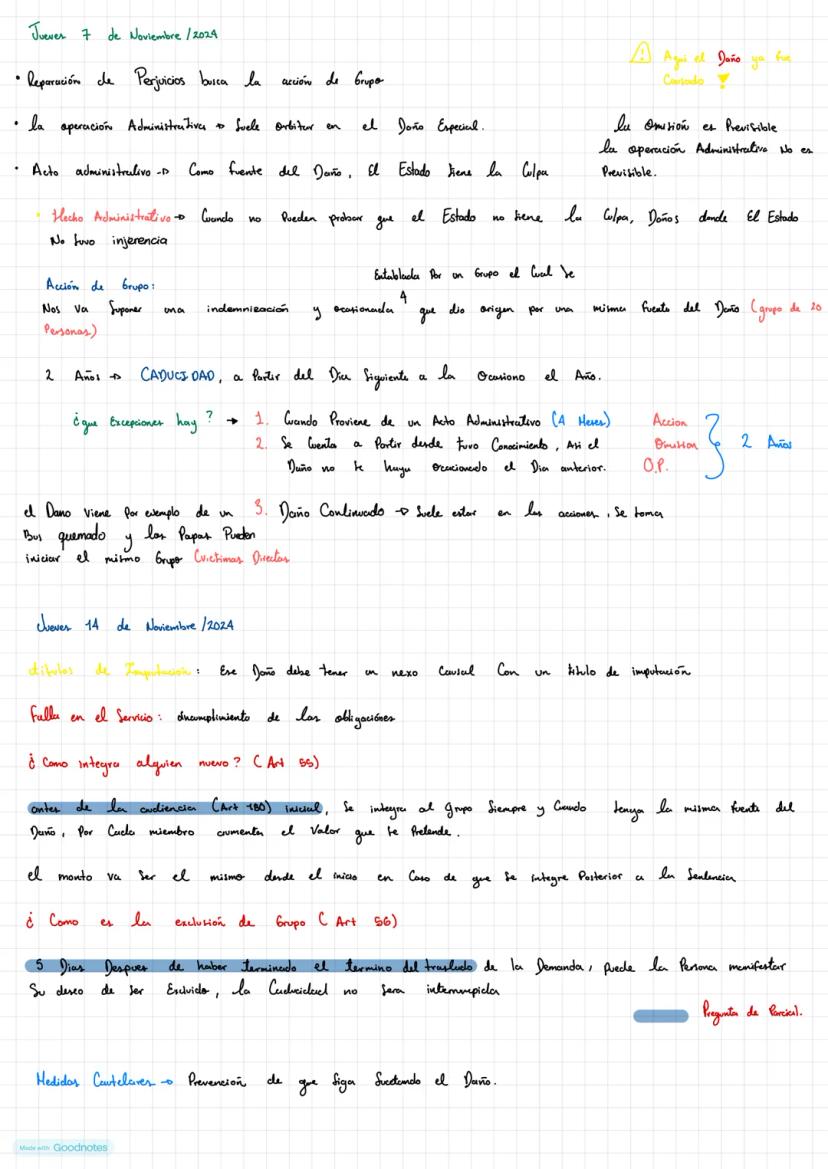 Jueves 7 de Noviembre/2024
⚠ Aqui el Daño ya fue
Causado
• Reparación de Perjuicios busca la acción de Grupo
• la operación Administrativa → Suele Orbitar en el Daño Especial.
la Omisión es Previsible
la operación Administrativa No es
Previsible.
• Acto administrativo → Como fuente del Daño, El Estado tiene la Culpa
• Hecho Administrativo → Cuando no Pueden probar que el Estado no tiene la Culpa, Daños donde El Estado
No tuvo injerencia
Acción de Grupo:
Entablada Por un Grupo el Cual se
Nos Va Suponer una indemnización y ocasionada que dio origen por una misma fuente del Daño (grupo de 20
Personas)
2 Años → CADUCIDAD, a Partir del Dia Siguiente a la Ocasiono el Año.
¿que Excepciones hay? → 1. Cuando Proviene de un Acto Administrativo (4 Meses)
2. Se Cuenta a Partir desde tuvo Conocimiento, Asi el
Daño no se haya Ocacionado el Dia anterior.
Accion
Omision
O.P.
2 Años
3. Daño Continuado → Suele estar en las acciones, Se toma
el Dano Viene Por ejemplo de un
Bus quemado y los Papas Pueden
iniciar el mismo Grupo (victimas Directas
Jueves 14 de Noviembre/2024
títulos de Imputación: Ese Daño debe tener un nexo Causal Con un titulo de imputación
Falla en el Servicio: incumplimiento de las obligaciónes
¿ Como integra alguien nuevo? (Art 55)
antes de la audiencia (Art 180) inicial, Se integra al Grupo Siempre y Cuando tenga la misma fuente del
Daño, Por Cada miembro aumenta el Valor que se Pretende.
el monto va Ser el mismo desde el inicio en Caso de que Se integre Posterior a la Sentencia
¿ Como es la exclusión de Grupo (Art 56)
5 Dias Despues de haber terminado el termino del traslado de la Demanda, puede la Persona manifestar
Su deseo de Ser Excluido, la Caducidad no Sera interrumpida
Pregunta de Parcial.
Medidas Cautelares → Prevención de que Siga Sucediendo el Daño.
Made with Goodnotes